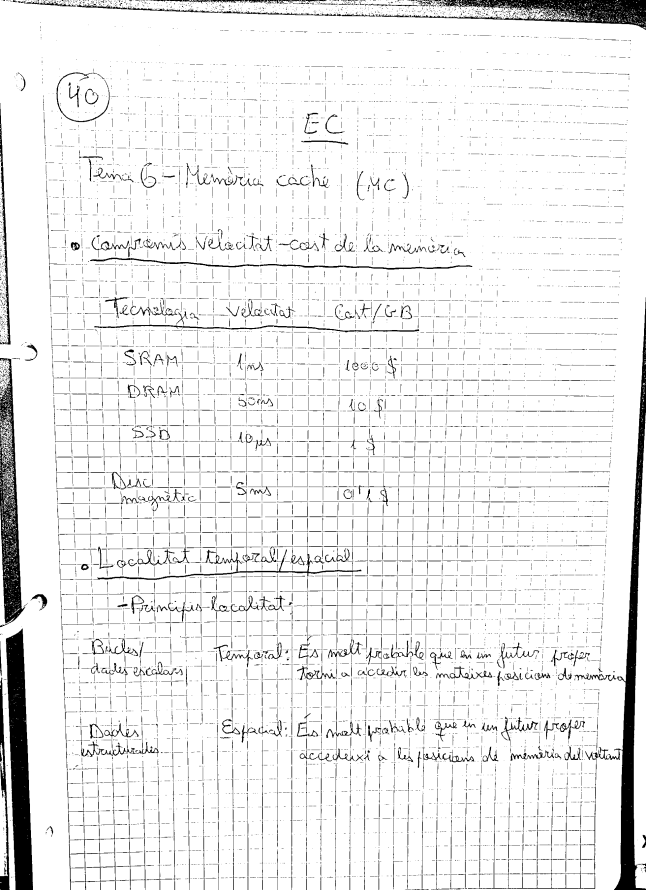 40
EC
Tema 6 - Memòria cache (MC)
• Compromís velocitat-cost de la memòria
Tecnologia velocitat Cost/GB
SRAM 1ns 1000 $
DRAM 50ns 10 $
SSD 10µs 1 $
Disc
magnètic 5ms 0'1 $
• Localitat temporal/espacial
- Principis localitat:
Bucles/ Temporal: És molt probable que en un futur proper
dades escalars torni a accedir les mateixes posicions de memòria
Dades Espacial: És molt probable que en un futur proper
estructurades accedeixi a les posicions de memòria del voltant